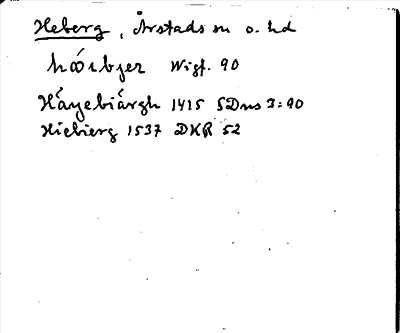 Heberg, Årstads sn o. hd
hǿrbjer Wigf. 90
Háyebiárgh 1415 SDns 3:90
Hiebierg 1537 DKR 52